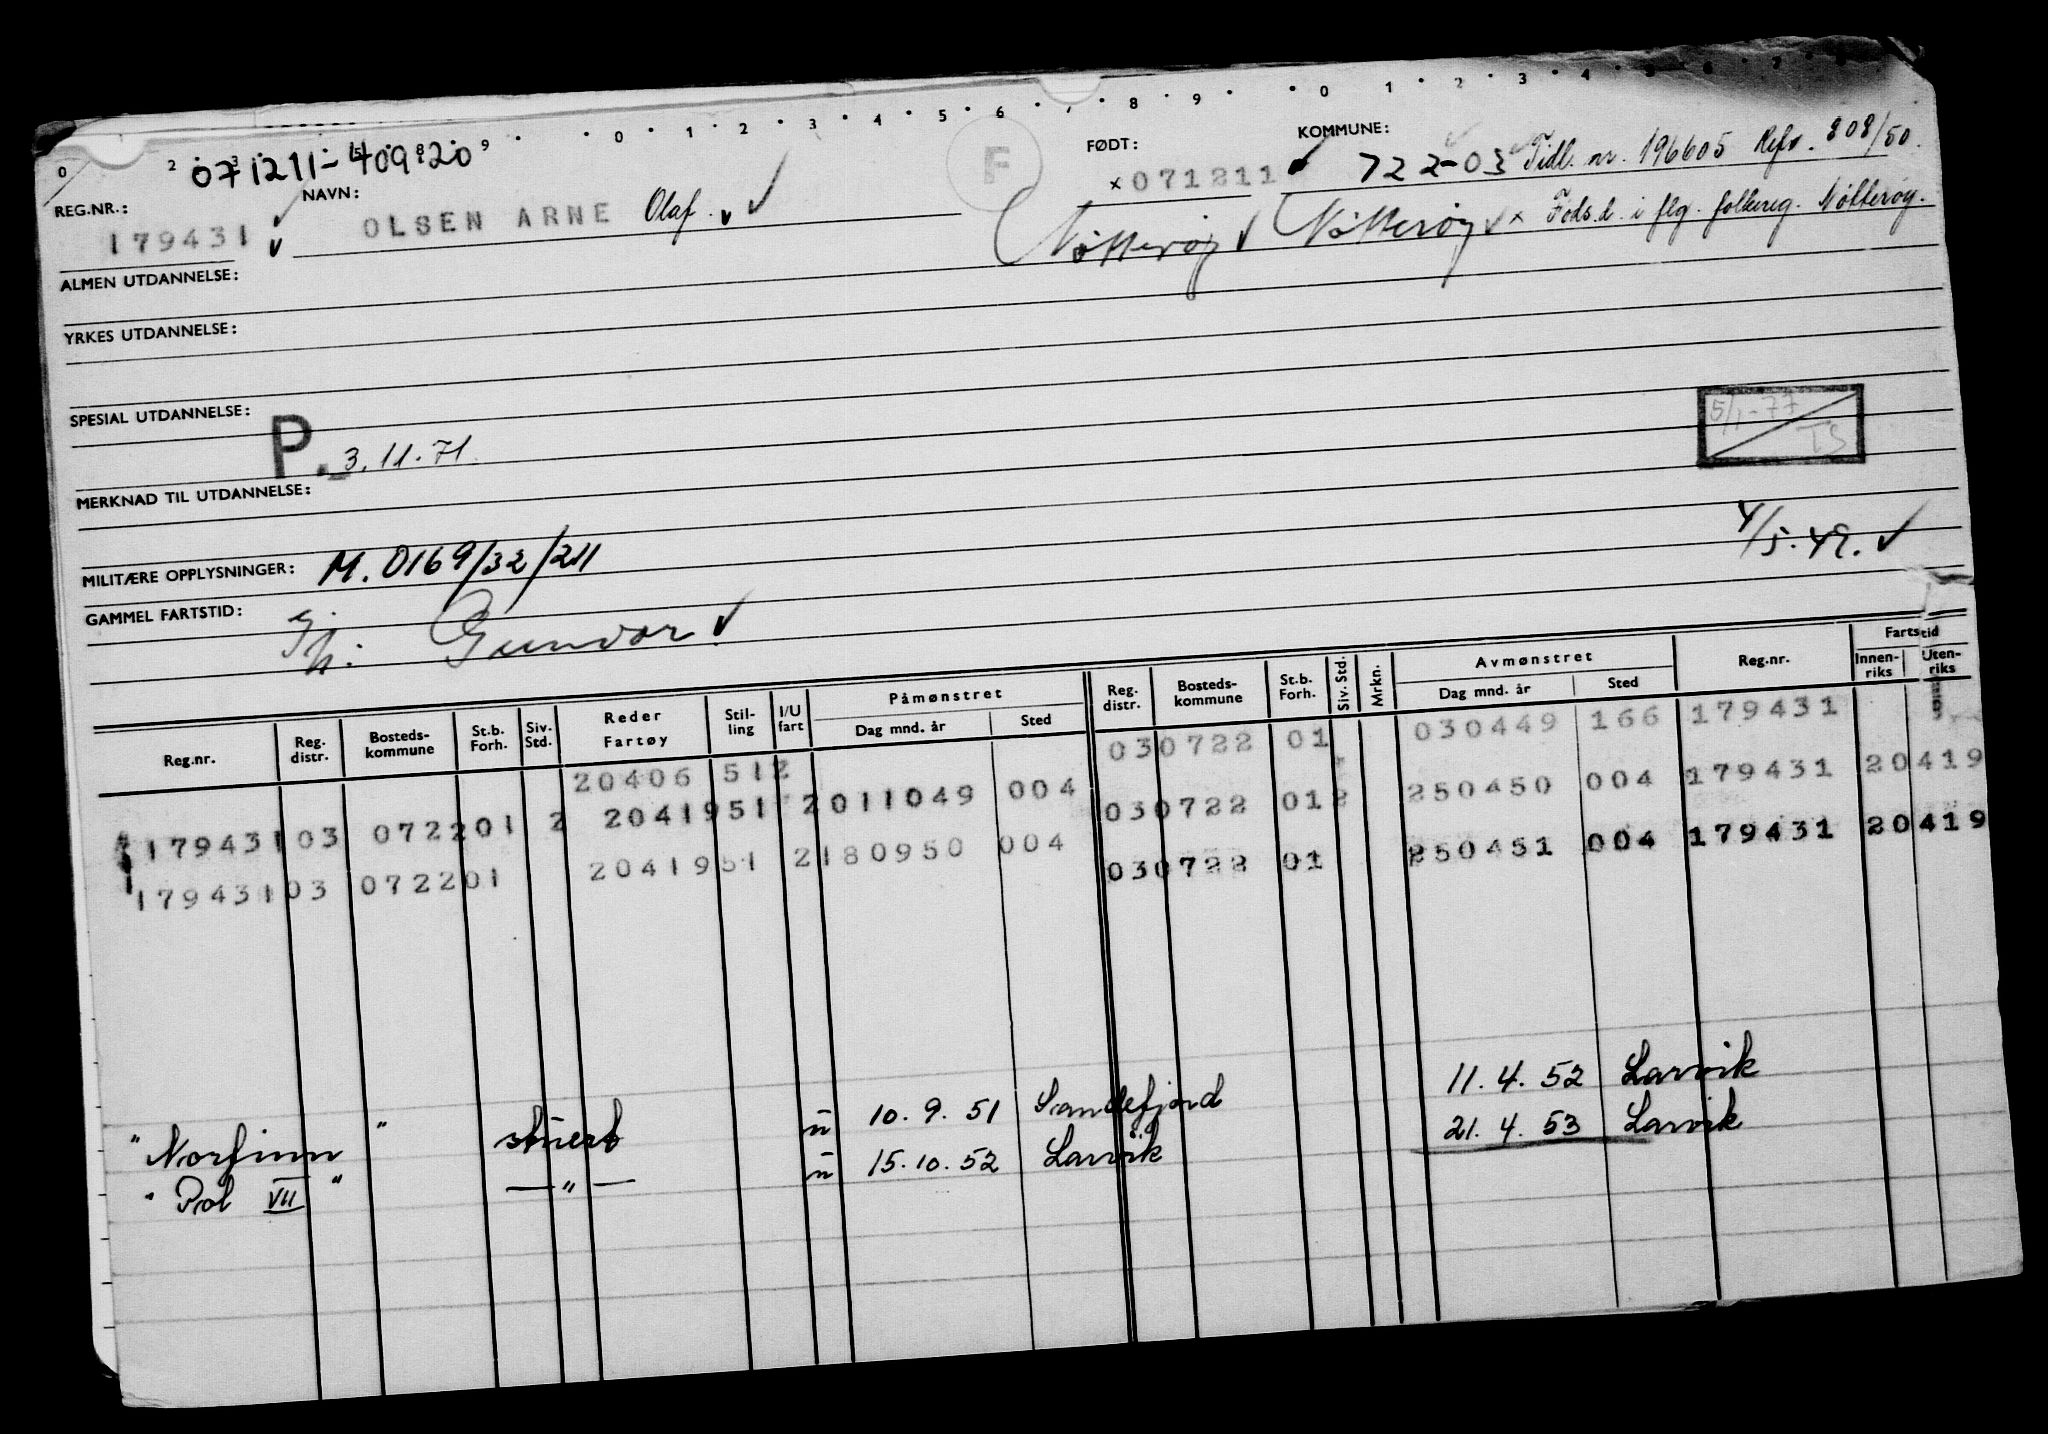 0 1 2 3 4 5 6 7 8 9 0 1 2 3 4 5 6 7 8
071211-40920
REG.NR.: NAVN: F FØDT: KOMMUNE:
179431 OLSEN ARNE Olaf. ×071211 722-03 Tidl. nr. 196605 Refr. 808/50.
Nøtterøy Nøtterøy × Føds.d. i flg. folkereg. Nøtterøy.
ALMEN UTDANNELSE:
YRKES UTDANNELSE:
SPESIAL UTDANNELSE:
P. 3.11.71. 5/1-77 TS
MERKNAD TIL UTDANNELSE:
MILITÆRE OPPLYSNINGER: M. 0169/32/211 4/5.49.
GAMMEL FARTSTID: Gj. h. Gunvor
Reg.nr. Reg. distr. Bosteds-kommune St.b. Forh. Siv. Std. Reder Fartøy Stil-ling I/U fart Påmønstret Dag mnd. år Sted Reg. distr. Bosteds-kommune St.b. Forh. Siv. Std. Mrkn. Avmønstret Dag mnd. år Sted Reg.nr. Fartstid Innen-riks Uten-riks
20406 512 030722 01 030449 166 179431
179431 03 0722 01 2 20419 51 2 011049 004 030722 01 2 250450 004 179431 20419
179431 03 0722 01 20419 51 2 180950 004 030722 01 250451 004 179431 20419
"Norfinn" stuert u 10.9.51 Sandefjord 11.4.52 Larvik
"Pol VII" —"— u 15.10.52 Larvik 21.4.53 Larvik